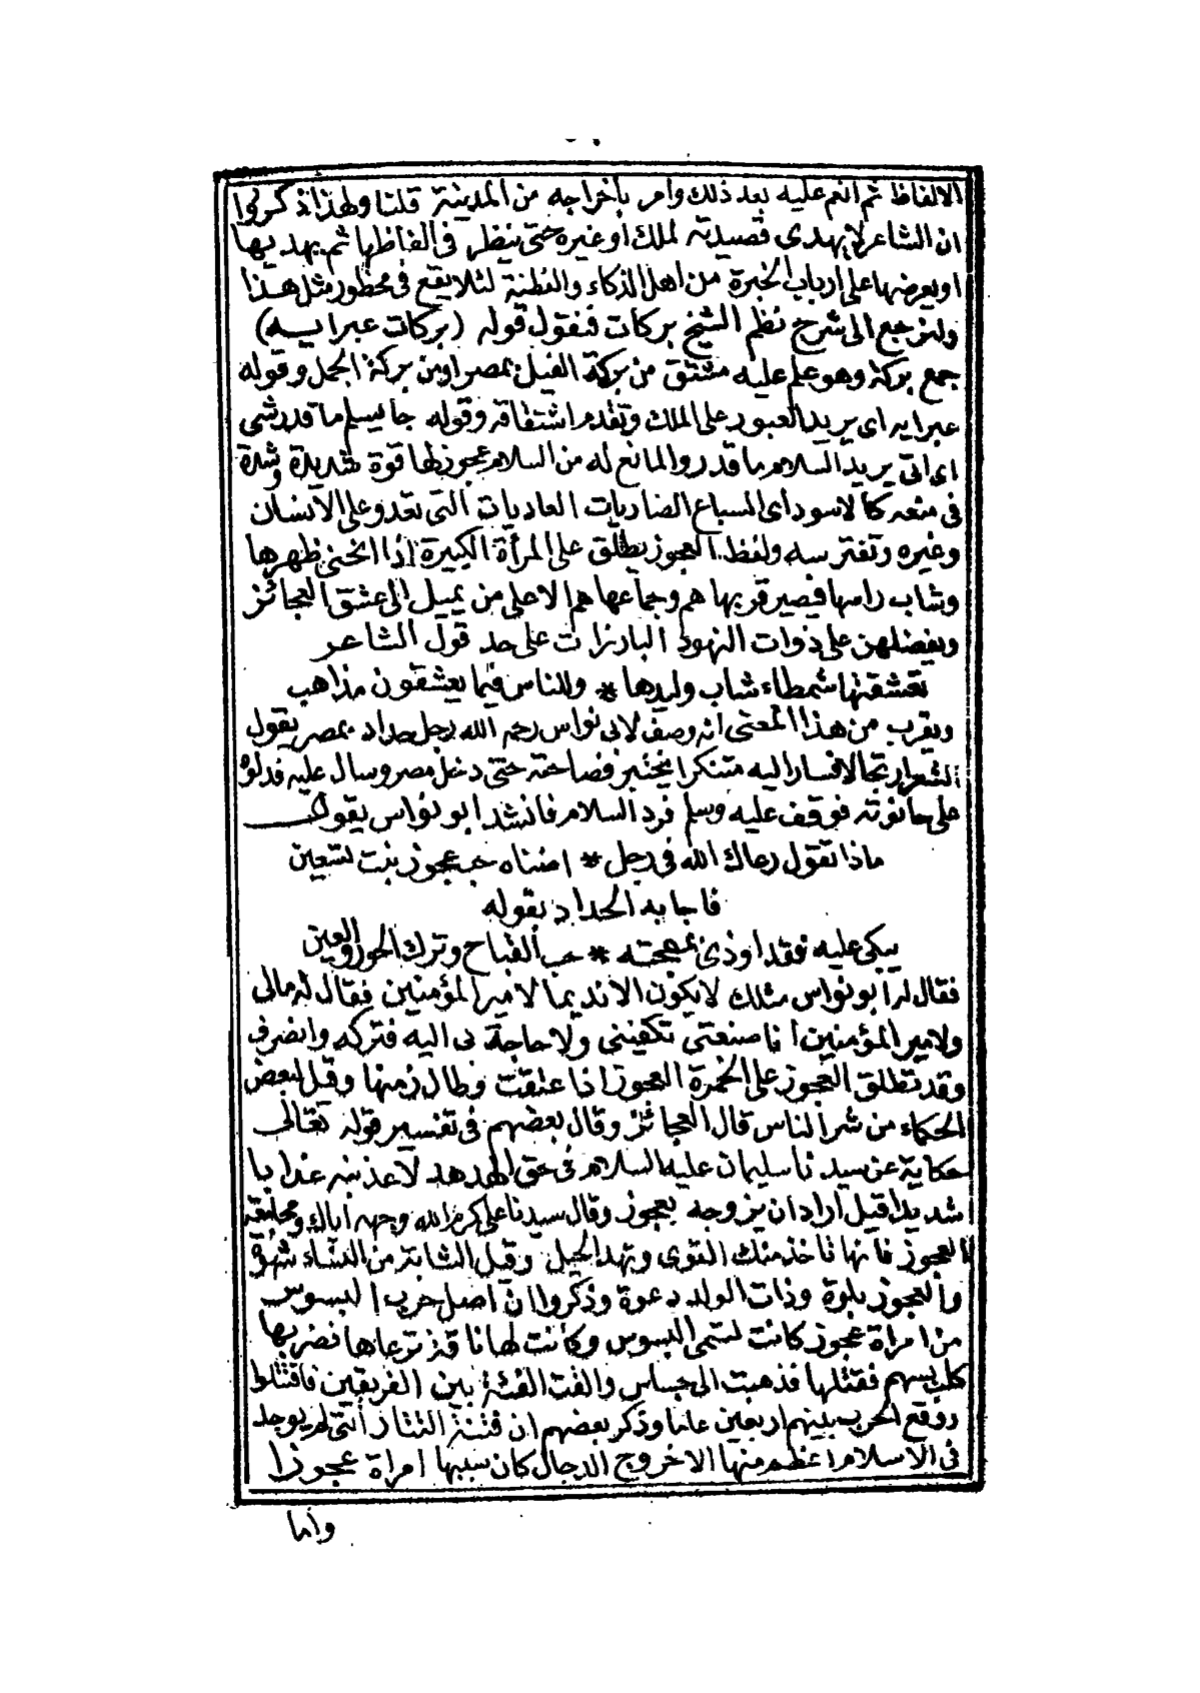 الالفاظ ثم انعم عليه بعد ذلك وامر باخراجه من المدينة قلنا ولهذا ذكروا
ان الشاعر لا يهدى قصيدته لملك او غيره حتى ينظر فى الفاظها ثم يهديها
او يعرضها على ارباب الخبرة من اهل الذكاء والفطنة لئلا يقع فى محظور مثل هذا
ولنرجع الى شرح نظم الشيخ بركات فنقول قوله (بركات عبرايه)
جمع بركة وهو علم عليه مشتق من بركة الفيل بمصر او من بركة الجمل وقوله
عبرايه اى يريد العبور على الملك وتقدم اشتقاقه وقوله جا يسلم ما قدرشى
اى اتى يريد السلام ما قدر والمانع له من السلام عجوز لها قوة شديدة وشدة
فى منعه كالاسود اى السباع الضاريات العاديات التى تعدو على الانسان
وغيره وتفترسه ولفظ العجوز يطلق على المرأة الكبيرة اذا انحنى ظهرها
وشاب راسها فيصير قربها هم وجماعها هم الا على من يميل الى عشق العجائز
ويفضلهن على ذوات النهود البارزات على حد قول الشاعر
تعشقتها شمطاء شاب وليدها * وللناس فيما يعشقون مذاهب
ويقرب من هذا المعنى انه وصف لابى نواس رحمه الله رجل حداد بمصر يقول
الشعر ارتجالا فسار اليه متنكرا يختبر فصاحته حتى دخل مصر وسال عليه فدلوه
على حانوته فوقف عليه وسلم فرد السلام فانشد ابو نواس يقول
ماذا تقول رعاك الله فى رجل * اضناه حب عجوز بنت تسعين
فاجابه الحداد بقوله
يبكى عليه فقد اوذى بمهجته * حب القباح وترك الحور والعين
فقال له ابو نواس مثلك لا يكون الا نديما لامير المؤمنين فقال له مالى
ولامير المؤمنين انا صنعتى تكفينى ولا حاجة لى اليه فتركه وانصرف
وقد تطلق العجوز على الخمرة العجوز اذا عتقت وطال زمنها وقيل لبعض
الحكماء من شر الناس قال العجائز وقال بعضهم فى تفسير قوله تعالى
حكاية عن سيدنا سليمان عليه السلام فى حق الهدهد لاعذبنه عذابا
شديدا قيل اراد ان يزوجه بعجوز وقال سيدنا على كرم الله وجهه اياك ومجامعة
العجوز فانها تاخذ منك القوى وتهد الحيل وقيل الشابة من النساء شهوة
والعجوز بلوة وذات الولد دعوة وذكروا ان اصل حرب البسوس
من امراة عجوز كانت تسمى البسوس وكانت لها ناقة ترعاها فضربها
كليب بسهم فقتلها فذهبت الى جساس والقت الفتنة بين الفريقين فاقتتلوا
ووقع الحرب بينهم اربعين عاما وذكر بعضهم ان فتنة التتار التى لم يوجد
فى الاسلام اعظم منها الا خروج الدجال كان سببها امراة عجوزا
واما